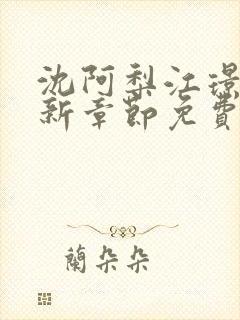 沈阿梨江璟
新章節免費
蘭朵朵